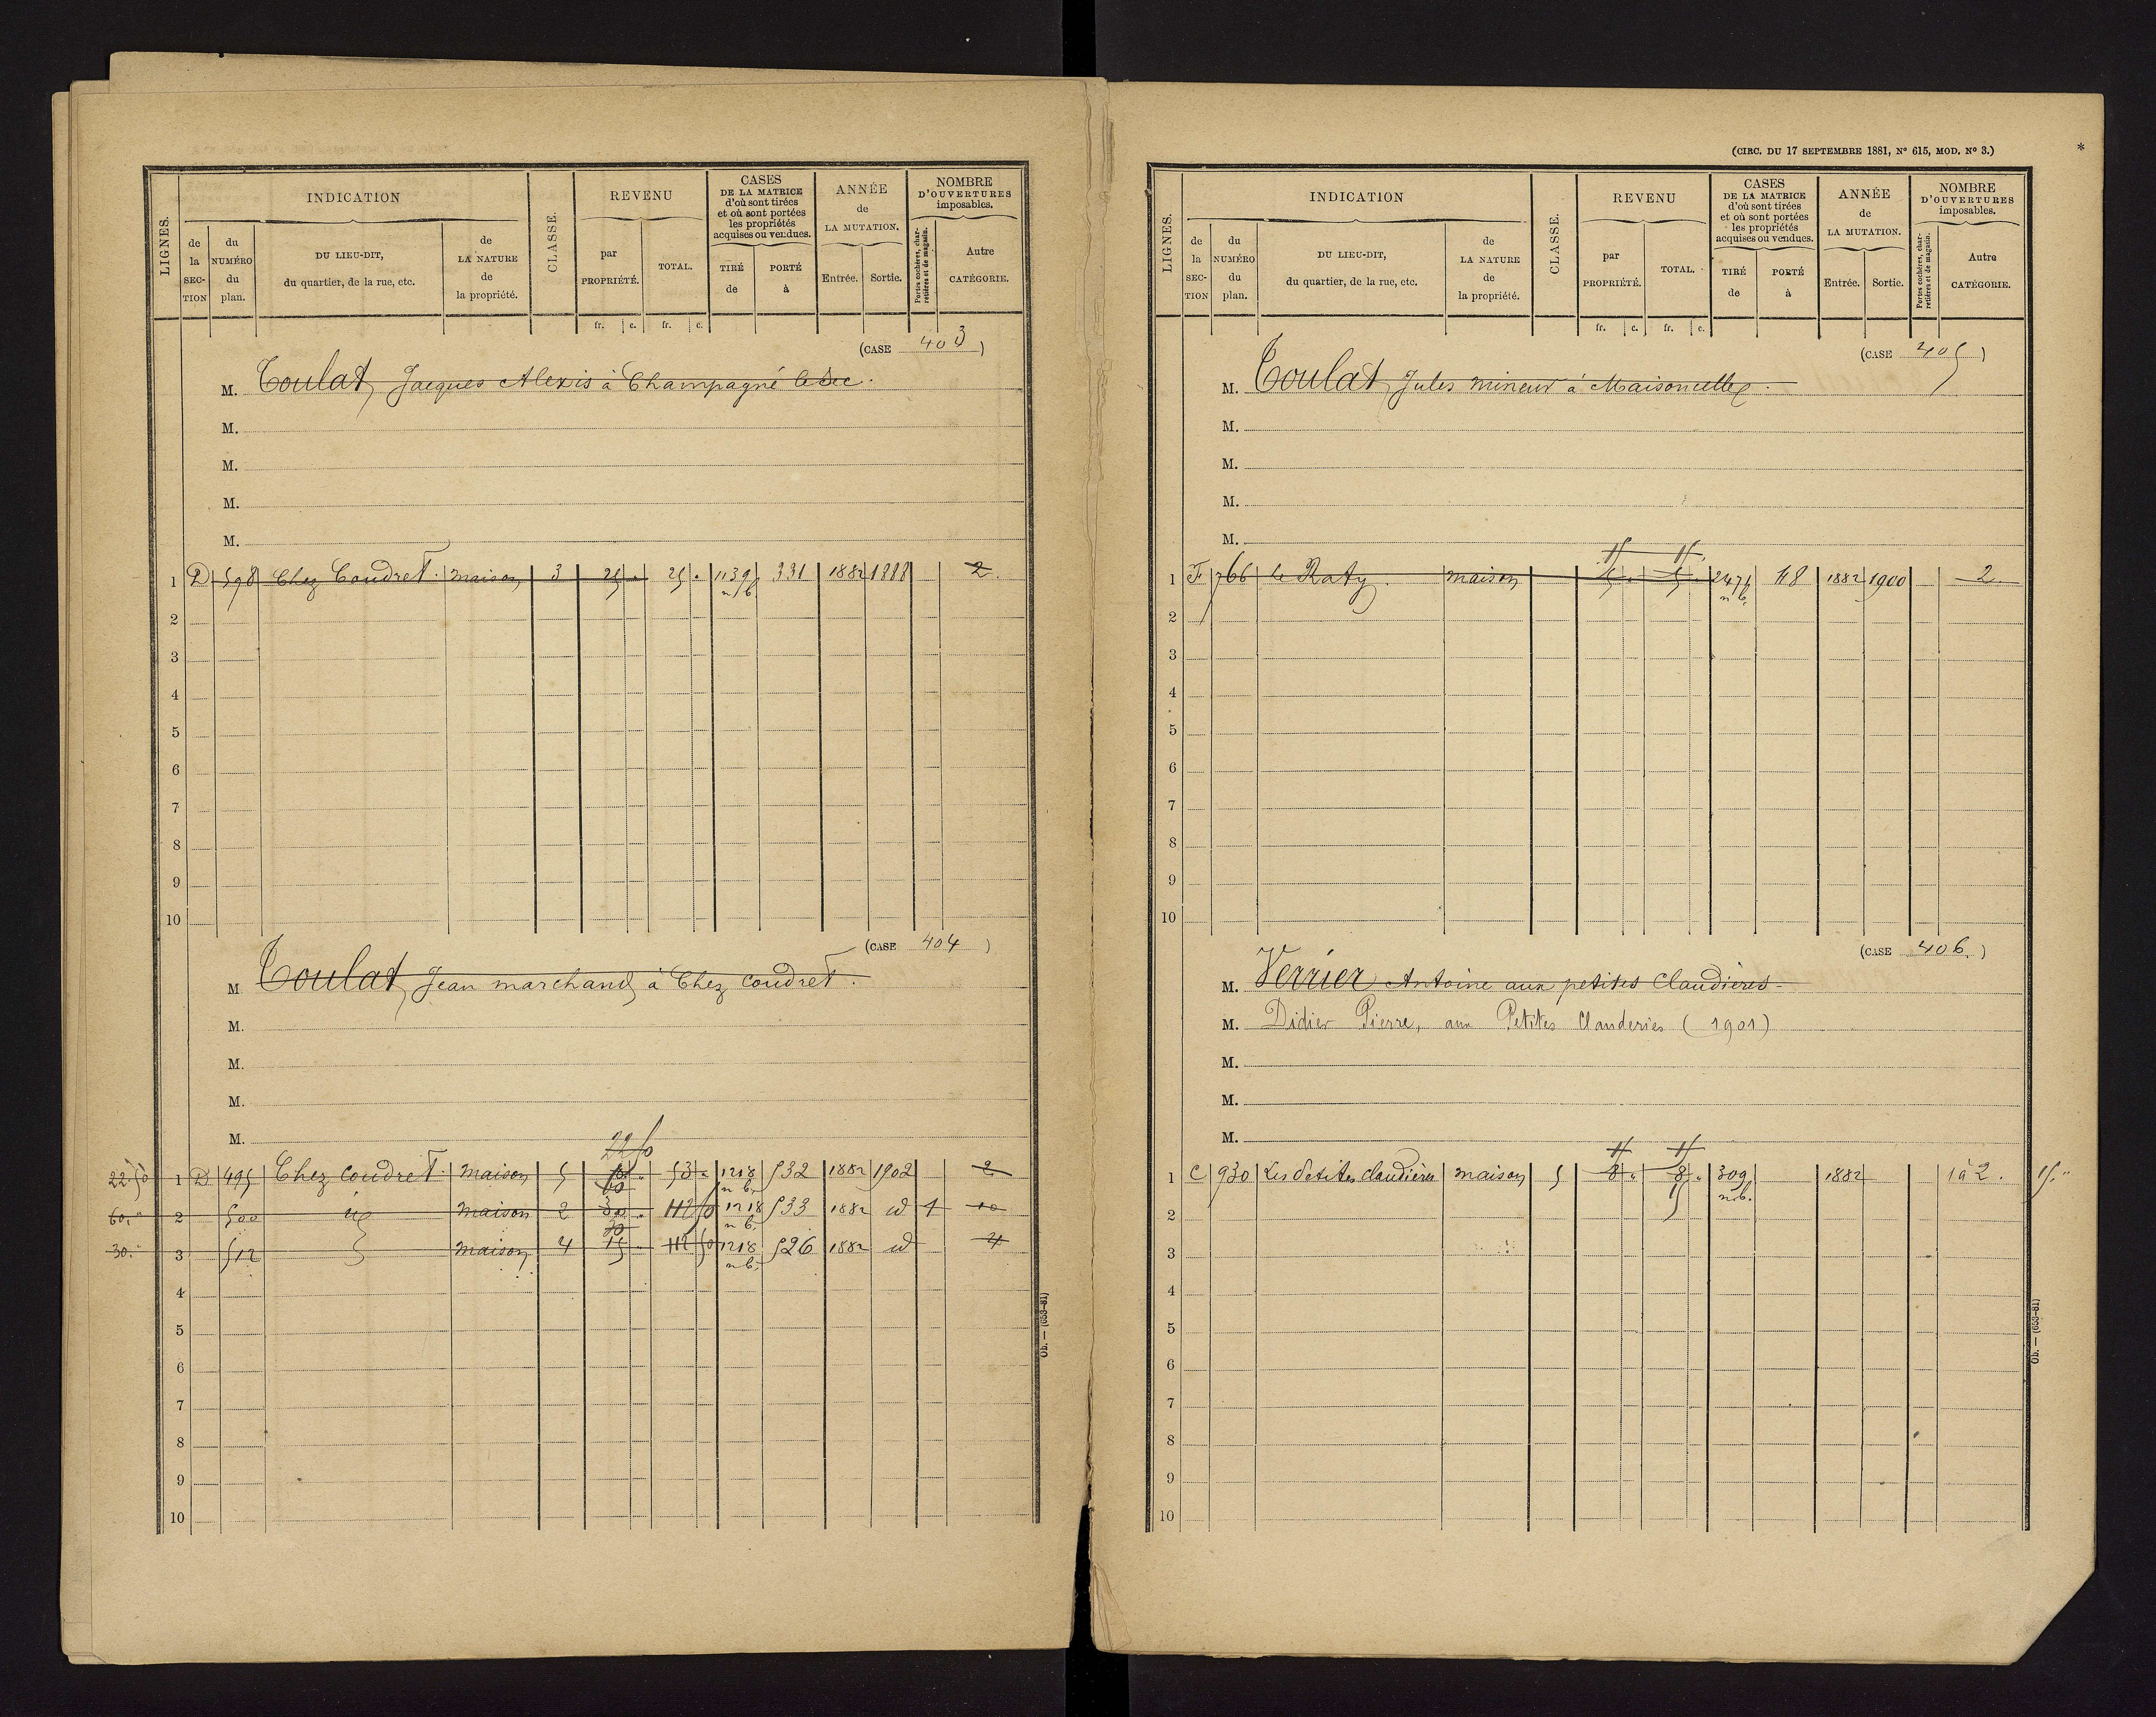 LIGNES.
INDICATION
de la SECTION
du NUMÉRO du plan.
DU LIEU-DIT, du quartier, de la rue, etc.
de LA NATURE de la propriété.
CLASSE.
REVENU
par PROPRIÉTÉ.
TOTAL.
CASES DE LA MATRICE d'où sont tirées et où sont portées les propriétés acquises ou vendues.
TIRÉ de
PORTÉ à
ANNÉE de LA MUTATION.
Entrée.
Sortie.
NOMBRE D'OUVERTURES imposables.
Portes cochères, charretières et de magasin.
Autre CATÉGORIE.
fr. c. fr. c.
(CASE 403)
M. Toulat, Jacques Alexis à Champagné le Sec.
M.
M.
M.
M.
1 D 598 Chez Coudret. maison 3 25 " 25 " 1139 n b 331 1882 1888 2
2
3
4
5
6
7
8
9
10
(CASE 404)
M Toulat, Jean marchand à Chez Coudret.
M.
M.
M.
M.
22 50
22.50 1 D 495 Chez coudret. maison 5 53 " 1218 n b. 532 1882 1902 2
60. " 2 500 id maison 2 60 112 50 1218 n b. 533 1882 id 1 10
30. " 3 512 maison 4 30 15 112 50 1218 n b. 526 1882 id 4
4
5
6
7
8
9
10
Ob. — (653-81)
(CIRC. DU 17 SEPTEMBRE 1881, N° 615, MOD. N° 3.) *
LIGNES.
INDICATION
de la SECTION
du NUMÉRO du plan.
DU LIEU-DIT, du quartier, de la rue, etc.
de LA NATURE de la propriété.
CLASSE.
REVENU
par PROPRIÉTÉ.
TOTAL.
CASES DE LA MATRICE d'où sont tirées et où sont portées les propriétés acquises ou vendues.
TIRÉ de
PORTÉ à
ANNÉE de LA MUTATION.
Entrée.
Sortie.
NOMBRE D'OUVERTURES imposables.
Portes cochères, charretières et de magasin.
Autre CATÉGORIE.
fr. c. fr. c.
(CASE 405)
M. Toulat, Jules mineur à Maisoncelles.
M.
M.
M.
M.
1 F 766 le Raty. maison 5 " 5 " 2475 n b. 48 1882 1900 2
2
3
4
5
6
7
8
9
10
(CASE 406.)
M. Verrier Antoine aux petites Claudières
M. Didier Pierre, aux Petites Clauderies (1901)
M.
M.
M.
1 C 930 Les Petites Claudières maison 5 8 " 8 " 309 n b. 1882 1 à 2. 15. "
15
2
3
4
5
6
7
8
9
10
Ob. — (653-81)